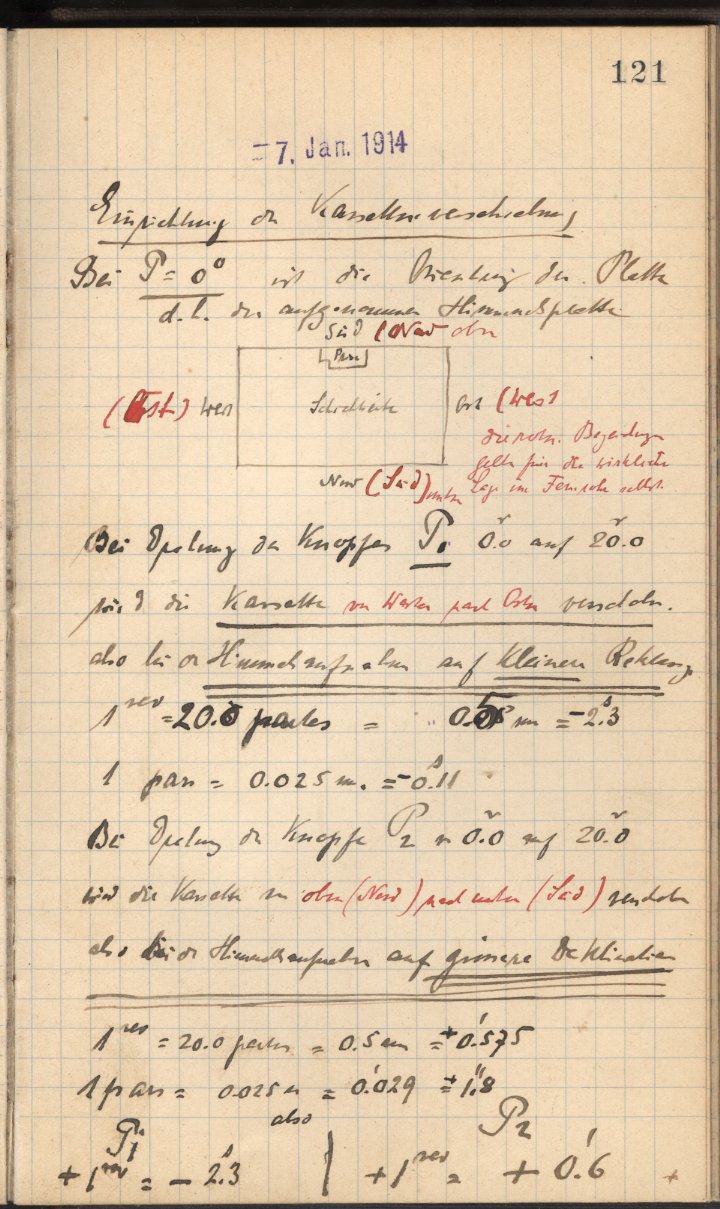 121
7. Jan. 1914
Einrichtung der Kassettenverschiebung
Bei P = 0° ist die Orientierung der Platte
d. h. der aufgenommenen Himmelsplatte
Süd (Nord oben
(Ost) West Schichtseite Ost (West
die roten Bezeichnungen
gelten für die wirkliche
Nord (Süd) unten Lage im Fernrohr selbst.
Bei Drehung des Knopfes P1 0.0 auf 20.0
wird die Kassette von Westen nach Osten verschoben.
also bei der Himmelsaufnahme auf kleinere Rektasz.
1 rev = 20.0 partes = 0.5 mm = -2.3s
1 pars = 0.025 m. = -0.11s
Bei Drehung des Knopfes P2 v 0.0 auf 20.0
wird die Kassette von oben (Nord) nach unten (Süd) verschoben
also bei der Himmelsaufnahme auf grössere Deklination
1 rev = 20.0 partes = 0.5 mm = +0.575'
1 pars = 0.025 m = 0.029' = +1.8"
also
P1 P2
+1 rev = - 2.3s | +1 rev = + 0.6' +